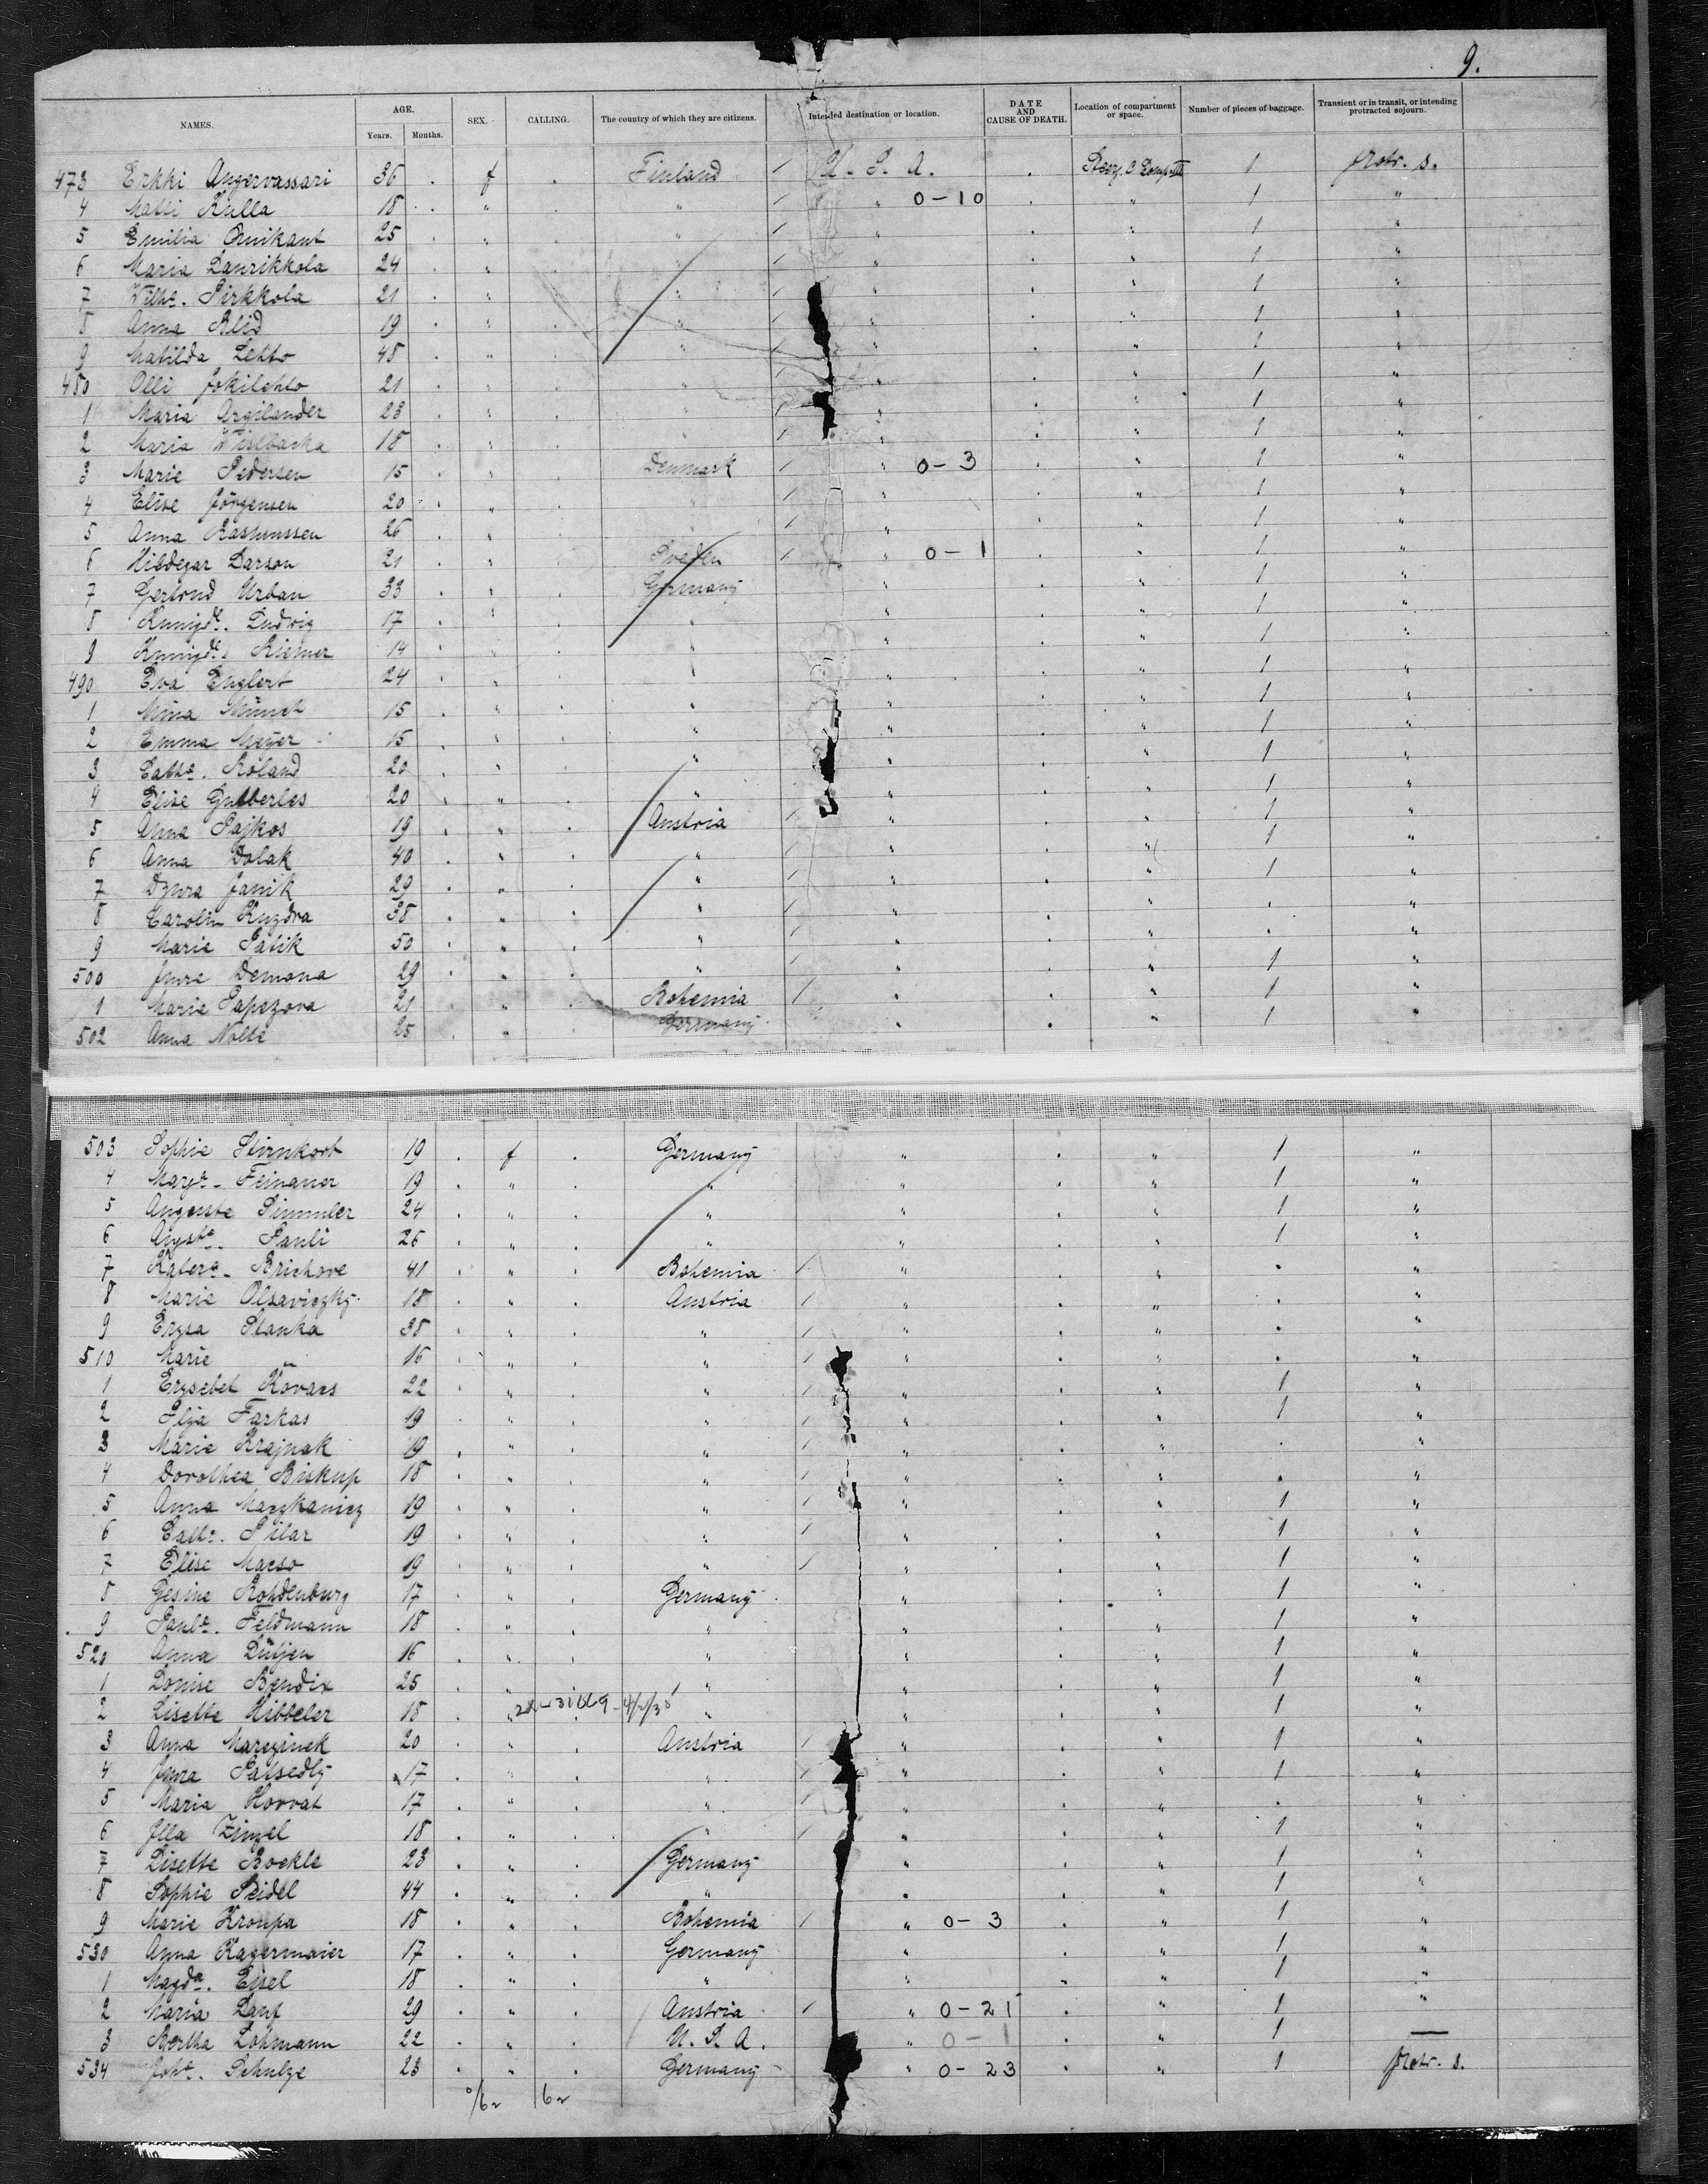 9.
NAMES. AGE. Years. Months. SEX. CALLING. The country of which they are citizens. Intended destination or location. DATE AND CAUSE OF DEATH. Location of compartment or space. Number of pieces of baggage. Transient or in transit, or intending protracted sojourn.
473 Erkki Angervassari 36 . f . Finland / U. S. A. . 1 protr. s.
4 Matti Kulla 18 . " . " / " 0-10 . " 1 "
5 Emilia 25 . " . " / " . " 1 "
6 Maria Laurikkola 24 . " . " / " . " 1 "
7 Wilhe. Pirkkola 21 . " . " / " . " 1 "
8 Anna Blid 19 . " . " / " . " 1 "
9 Matilda Lehto 48 . " . " / " . " 1 "
480 Olli Jokilehto 21 . " . " / " . " 1 "
1 Maria Argilander 23 . " . " / " . " 1 "
2 Maria 18 . " . " / " . " 1 "
3 Marie Pedersen 15 . " . Denmark / " 0-3 . " 1 "
4 Elise Jörgensen 20 . " . " / " . " 1 "
5 Anna Rasmussen 26 . " . " / " . " 1 "
6 Hildegar Larson 21 . " . Sweden / " 0-1 . " 1 "
7 Gertrud Urban 33 . " . Germany " . " 1 "
8 Kunigde. Ludwig 17 . " . " " . " 1 "
9 Kunigde. Riemer 14 . " . " " . " 1 "
490 Eva Englert 24 . " . " " . " 1 "
1 Mina Münch 15 . " . " " . " 1 "
2 Emma Meyer 15 . " . " " . " 1 "
3 Cathe. Roland 20 . " . " " . " 1 "
4 Elise Gutberles 20 . " . " " . " 1 "
5 Anna Pajkos 19 . " . Austria / " . " 1 "
6 Anna Dolak 40 . " . " / " . " 1 "
7 Dzura Janik 29 . " . " / " . " 1 "
8 Carolin Kuzdra 38 . " . " / " . " . "
9 Marie Patik 50 . " . " / " . " . "
500 Jmre Demona 29 . " . " / " . " 1 "
1 Marie Papezova 21 . " . Bohemia / " . " 1 "
502 Anna Nolte 25 . " . Germany " . " 1 "
503 Sophie Stirnkorb 19 . f . Germany " . " 1 "
4 Margr. Feinauer 19 . " . " " . " 1 "
5 Auguste Simmler 24 . " . " " . " 1 "
6 Augste. Pauli 26 . " . " " . " 1 "
7 Katera. Brichove 41 . " . Bohemia / " . " . "
8 Marie Olsaviczky 18 . " . Austria / " . " . "
9 Erzsa Stanka 38 . " . " / " . " . "
510 Marie " 16 . " . " / " . " . "
1 Erzsebet Kovacs 22 . " . " / " . " 1 "
2 Ilja Farkas 19 . " . " / " . " 1 "
3 Marie Krajnak 19 . " . " / " . " . "
4 Dorothea Biskup 18 . " . " / " . " . "
5 Anna Maczkanicz 19 . " . " / " . " 1 "
6 Cathe. Pilar 19 . " . " / " . " 1 "
7 Elise Macso 19 . " . " / " . " 1 "
8 Gesine Rohdenburg 17 . " . Germany " . " 1 "
9 Paule. Feldmann 18 . " . " " . " 1 "
520 Anna Lütjen 16 . " . " " . " 1 "
1 Louise Bendix 25 . " . " " . " 1 "
2 Lisette Hibbeler 18 . " . " " . " 1 "
3 Anna Marczinek 20 . " . Austria / " . " 1 "
4 Jmra Patsedly 17 . " . " / " . " 1 "
5 Maria Horvat 17 . " . " / " . " . "
6 Illa Zinzel 18 . " . " / " . " 1 "
7 Lisette Boekle 23 . " . Germany " . " 1 "
8 Sophie Seidel 44 . " . " " . " 1 "
9 Marie Kroupa 18 . " . Bohemia / " 0-3 . " 1 "
530 Anna Kagermaier 17 . " . Germany " . " 1 "
1 Magda. Eisel 18 . " . " " . " 1 "
2 Maria Lauf 29 . " . Austria / " 0-21 . " 1 "
3 Bertha Lohmann 22 . " . U. S. A. " 0-1 . " 1 —
534 Johe. Schulze 23 . " . Germany " 0-23 . " 1 protr. s.